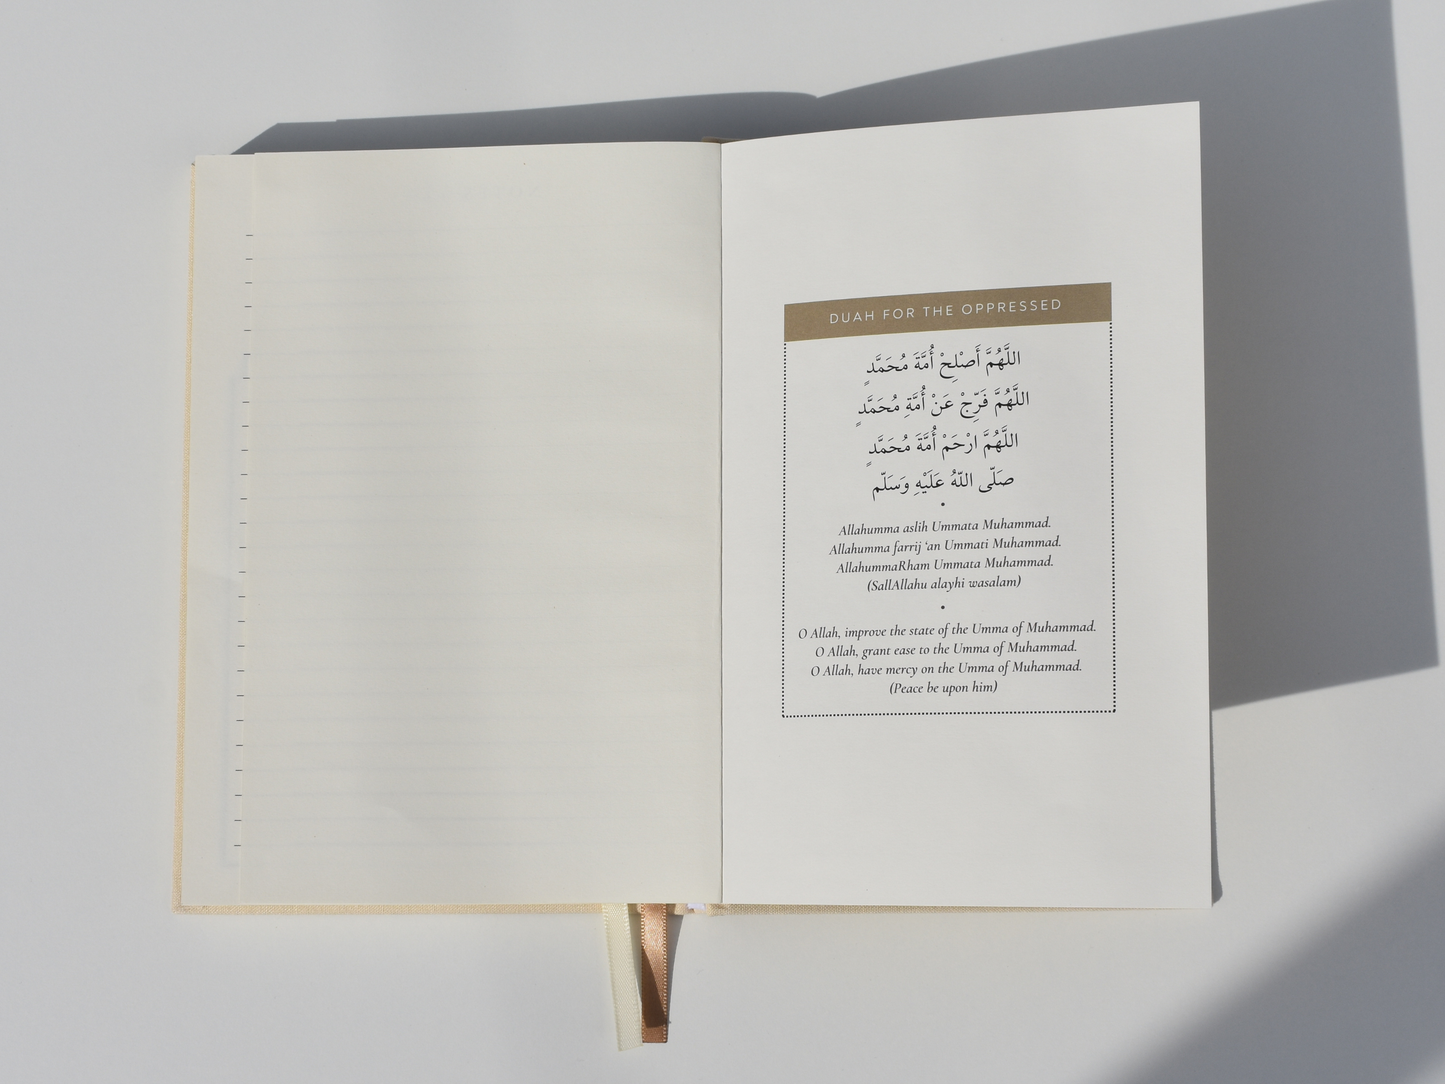 DUAH FOR THE OPPRESSED
اللَّهُمَّ أَصْلِحْ أُمَّةَ مُحَمَّدٍ
اللَّهُمَّ فَرِّجْ عَنْ أُمَّةِ مُحَمَّدٍ
اللَّهُمَّ ارْحَمْ أُمَّةَ مُحَمَّدٍ
صَلّى اللّهُ عَلَيْهِ وَسَلّم
Allahumma aslih Ummata Muhammad.
Allahumma farrij ‘an Ummati Muhammad.
AllahummaRham Ummata Muhammad.
(SallAllahu alayhi wasalam)
O Allah, improve the state of the Umma of Muhammad.
O Allah, grant ease to the Umma of Muhammad.
O Allah, have mercy on the Umma of Muhammad.
(Peace be upon him)